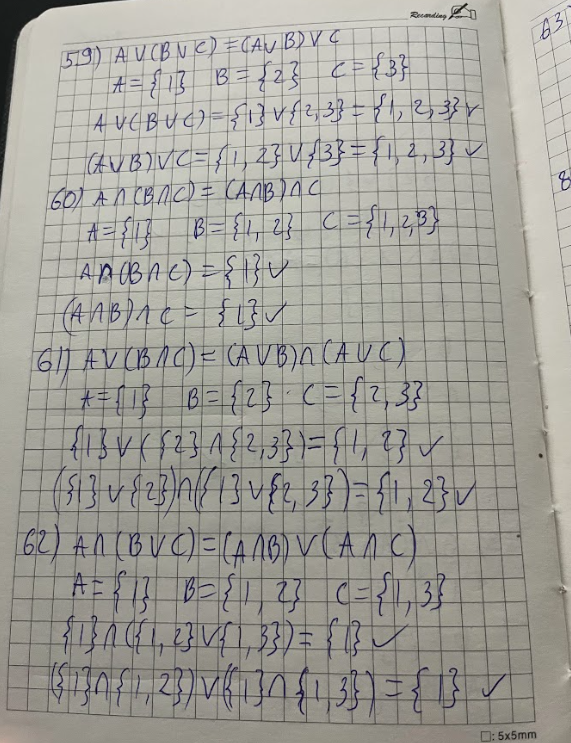 Recording
63
59) A∪(B∪C)=(A∪B)∪C
A={1} B={2} C={3}
A∪(B∪C)={1}∪{2,3}={1,2,3}✓
(A∪B)∪C={1,2}∪{3}={1,2,3}✓
60) A∩(B∩C)=(A∩B)∩C
A={1} B={1,2} C={1,2,3}
A∩(B∩C)={1}✓
(A∩B)∩C={1}✓
8
61) A∪(B∩C)=(A∪B)∩(A∪C)
A={1} B={2} C={2,3}
{1}∪({2}∩{2,3})={1,2}✓
({1}∪{2})∩({1}∪{2,3})={1,2}✓
62) A∩(B∪C)=(A∩B)∪(A∩C)
A={1} B={1,2} C={1,3}
{1}∩({1,2}∪{1,3})={1}✓
({1}∩{1,2})∪({1}∩{1,3})={1}✓
□:5x5mm